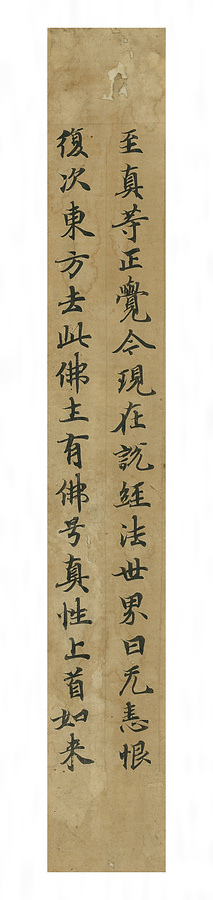 至真等正覺令現在説經法世界曰无恚恨
復次東方去此佛土有佛号真性上首如来